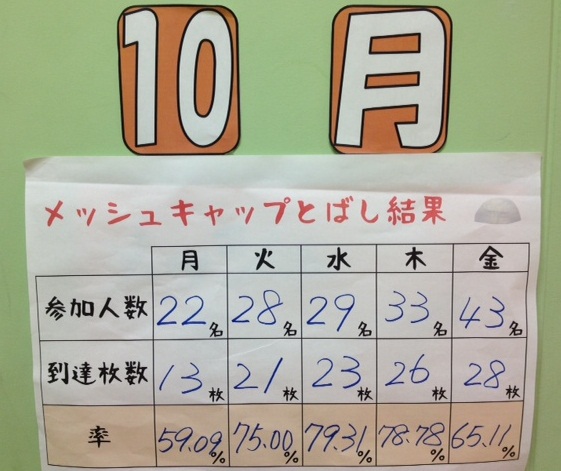 10月
メッシュキャップとばし結果
月 火 水 木 金
参加人数 22名 28名 29名 33名 43名
到達枚数 13枚 21枚 23枚 26枚 28枚
率 59.09% 75.00% 79.31% 78.78% 65.11%